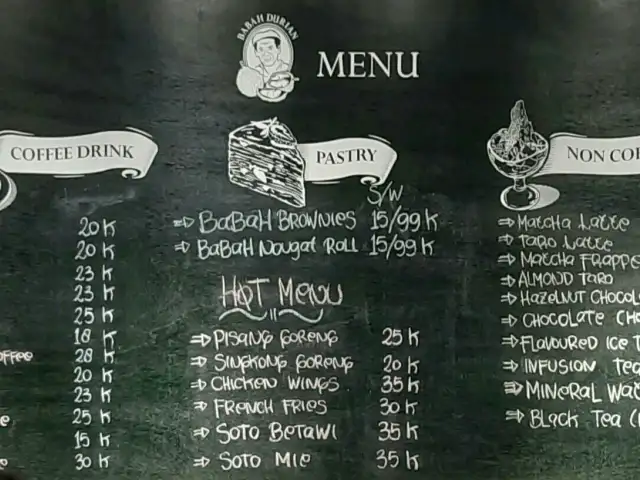 BABAH DURIAN
MENU
COFFEE DRINK
20 K
20 K
23 K
23 K
25 K
18 K
28 K
20 K
23 K
25 K
15 K
30 K
PASTRY
S/W
⇒ BaBaH BROWNIES 15/99 K
⇒ BaBaH Nougat Roll 15/99 K
HOT Menu
⇒ PISANG GORENG 25 K
⇒ SINGKONG GORENG 20 K
⇒ CHICKEN WINGS 35 K
⇒ FRENCH FRIES 30 K
⇒ SOTO BETAWI 35 K
⇒ SOTO MIE 35 K
NON COF
⇒ Matcha Latte
⇒ Taro Latte
⇒ Matcha Frappe
⇒ ALMOND TARO
⇒ Hazelnut Chocol
⇒ CHOCOLATE CHO
⇒ Flavoured Ice T
⇒ INFUSION Tea
⇒ MINERAL Wat
⇒ Black Tea (